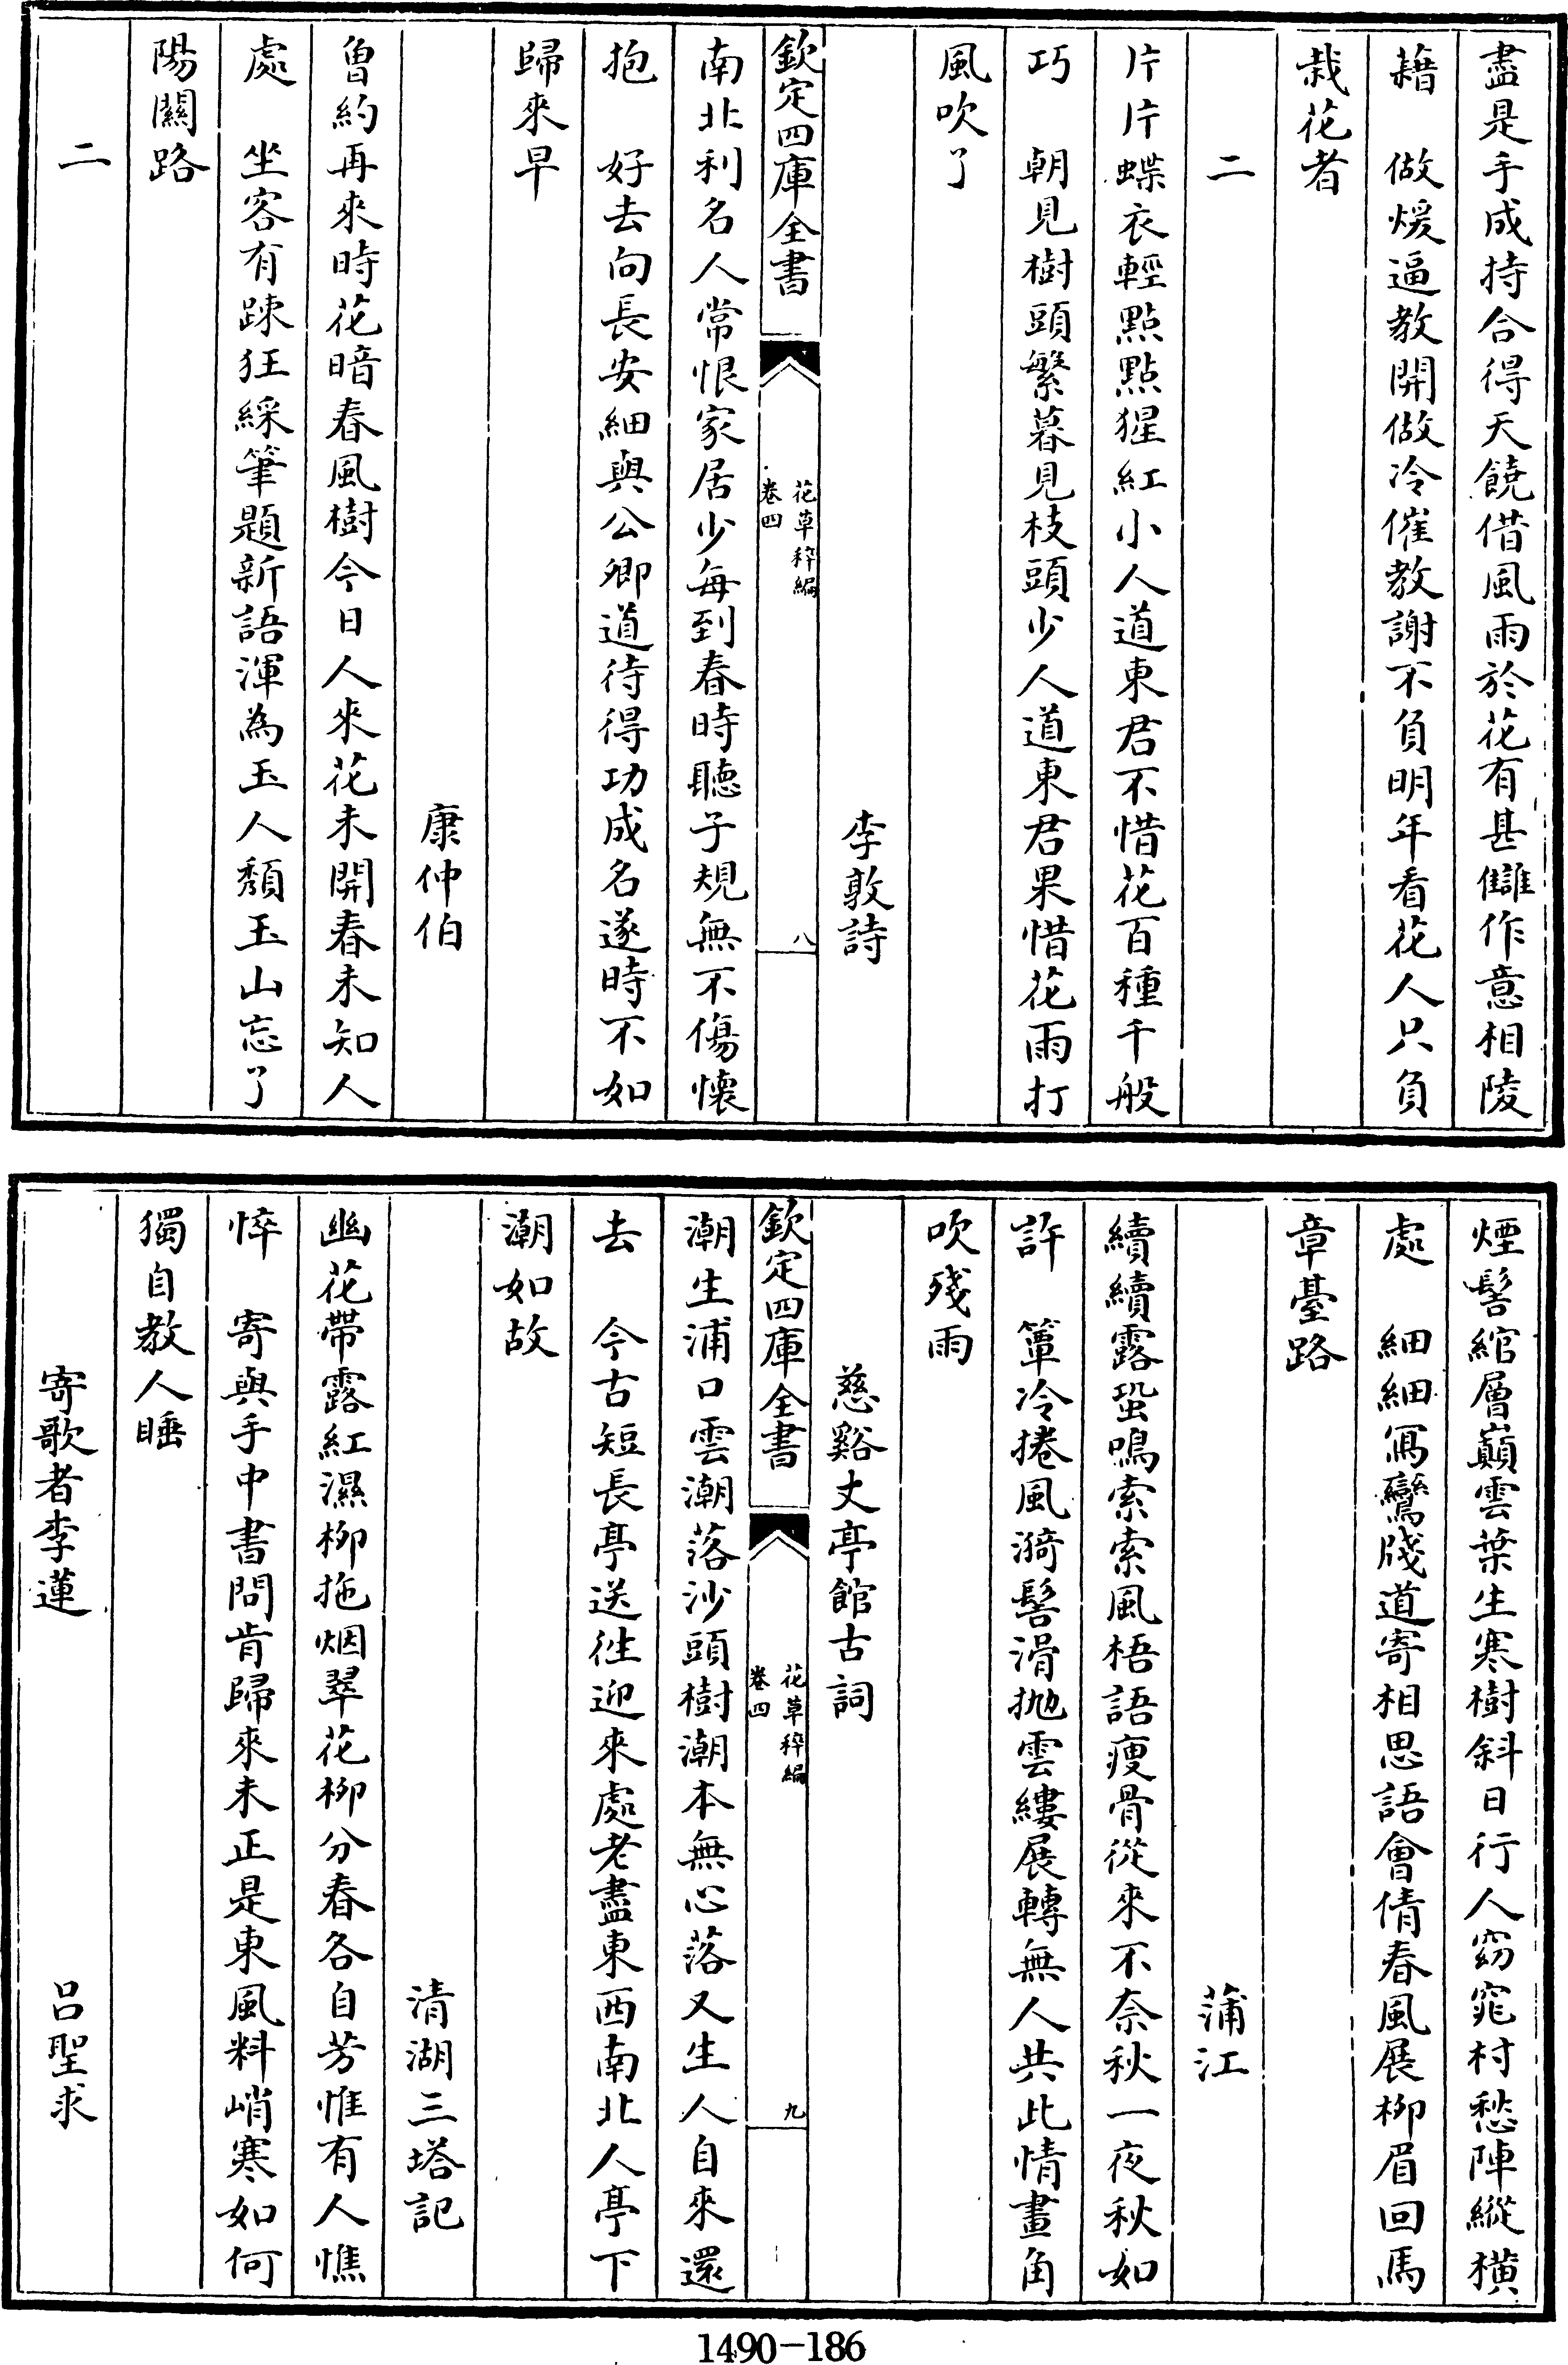 盡是手成持合得天饒借風雨於花有甚讎作意相陵
藉　做煖逼教開做冷催教謝不負明年看花人只負
栽花者
二
片片蝶衣輕點點猩紅小人道東君不惜花百種千般
巧　朝見樹頭繁暮見枝頭少人道東君果惜花雨打
風吹了
李敦詩
欽定四庫全書
花草稡編
卷四
八
南北利名人常恨家居少每到春時聽子規無不傷懷
抱　好去向長安細與公卿道待得功成名遂時不如
歸來早
康仲伯
曾約再來時花暗春風樹今日人來花未開春未知人
處　坐客有踈狂綵筆題新語渾為玉人頹玉山忘了
陽關路
二
煙髻綰層巔雲葉生寒樹斜日行人窈窕村愁陣縱橫
處　細細寫鸞牋道寄相思語會倩春風展柳眉回馬
章臺路
蒲江
續續露蛩鳴索索風梧語瘦骨從來不奈秋一夜秋如
許　簟冷捲風漪髻滑拋雲縷展轉無人共此情畫角
吹殘雨
慈谿丈亭館古詞
欽定四庫全書
花草稡編
卷四
九
潮生浦口雲潮落沙頭樹潮本無心落又生人自來還
去　今古短長亭送徃迎來處老盡東西南北人亭下
潮如故
清湖三塔記
幽花帶露紅濕柳拖烟翠花柳分春各自芳惟有人憔
悴　寄與手中書問肯歸來未正是東風料峭寒如何
獨自教人睡
寄歌者李蓮　呂聖求
1490-186